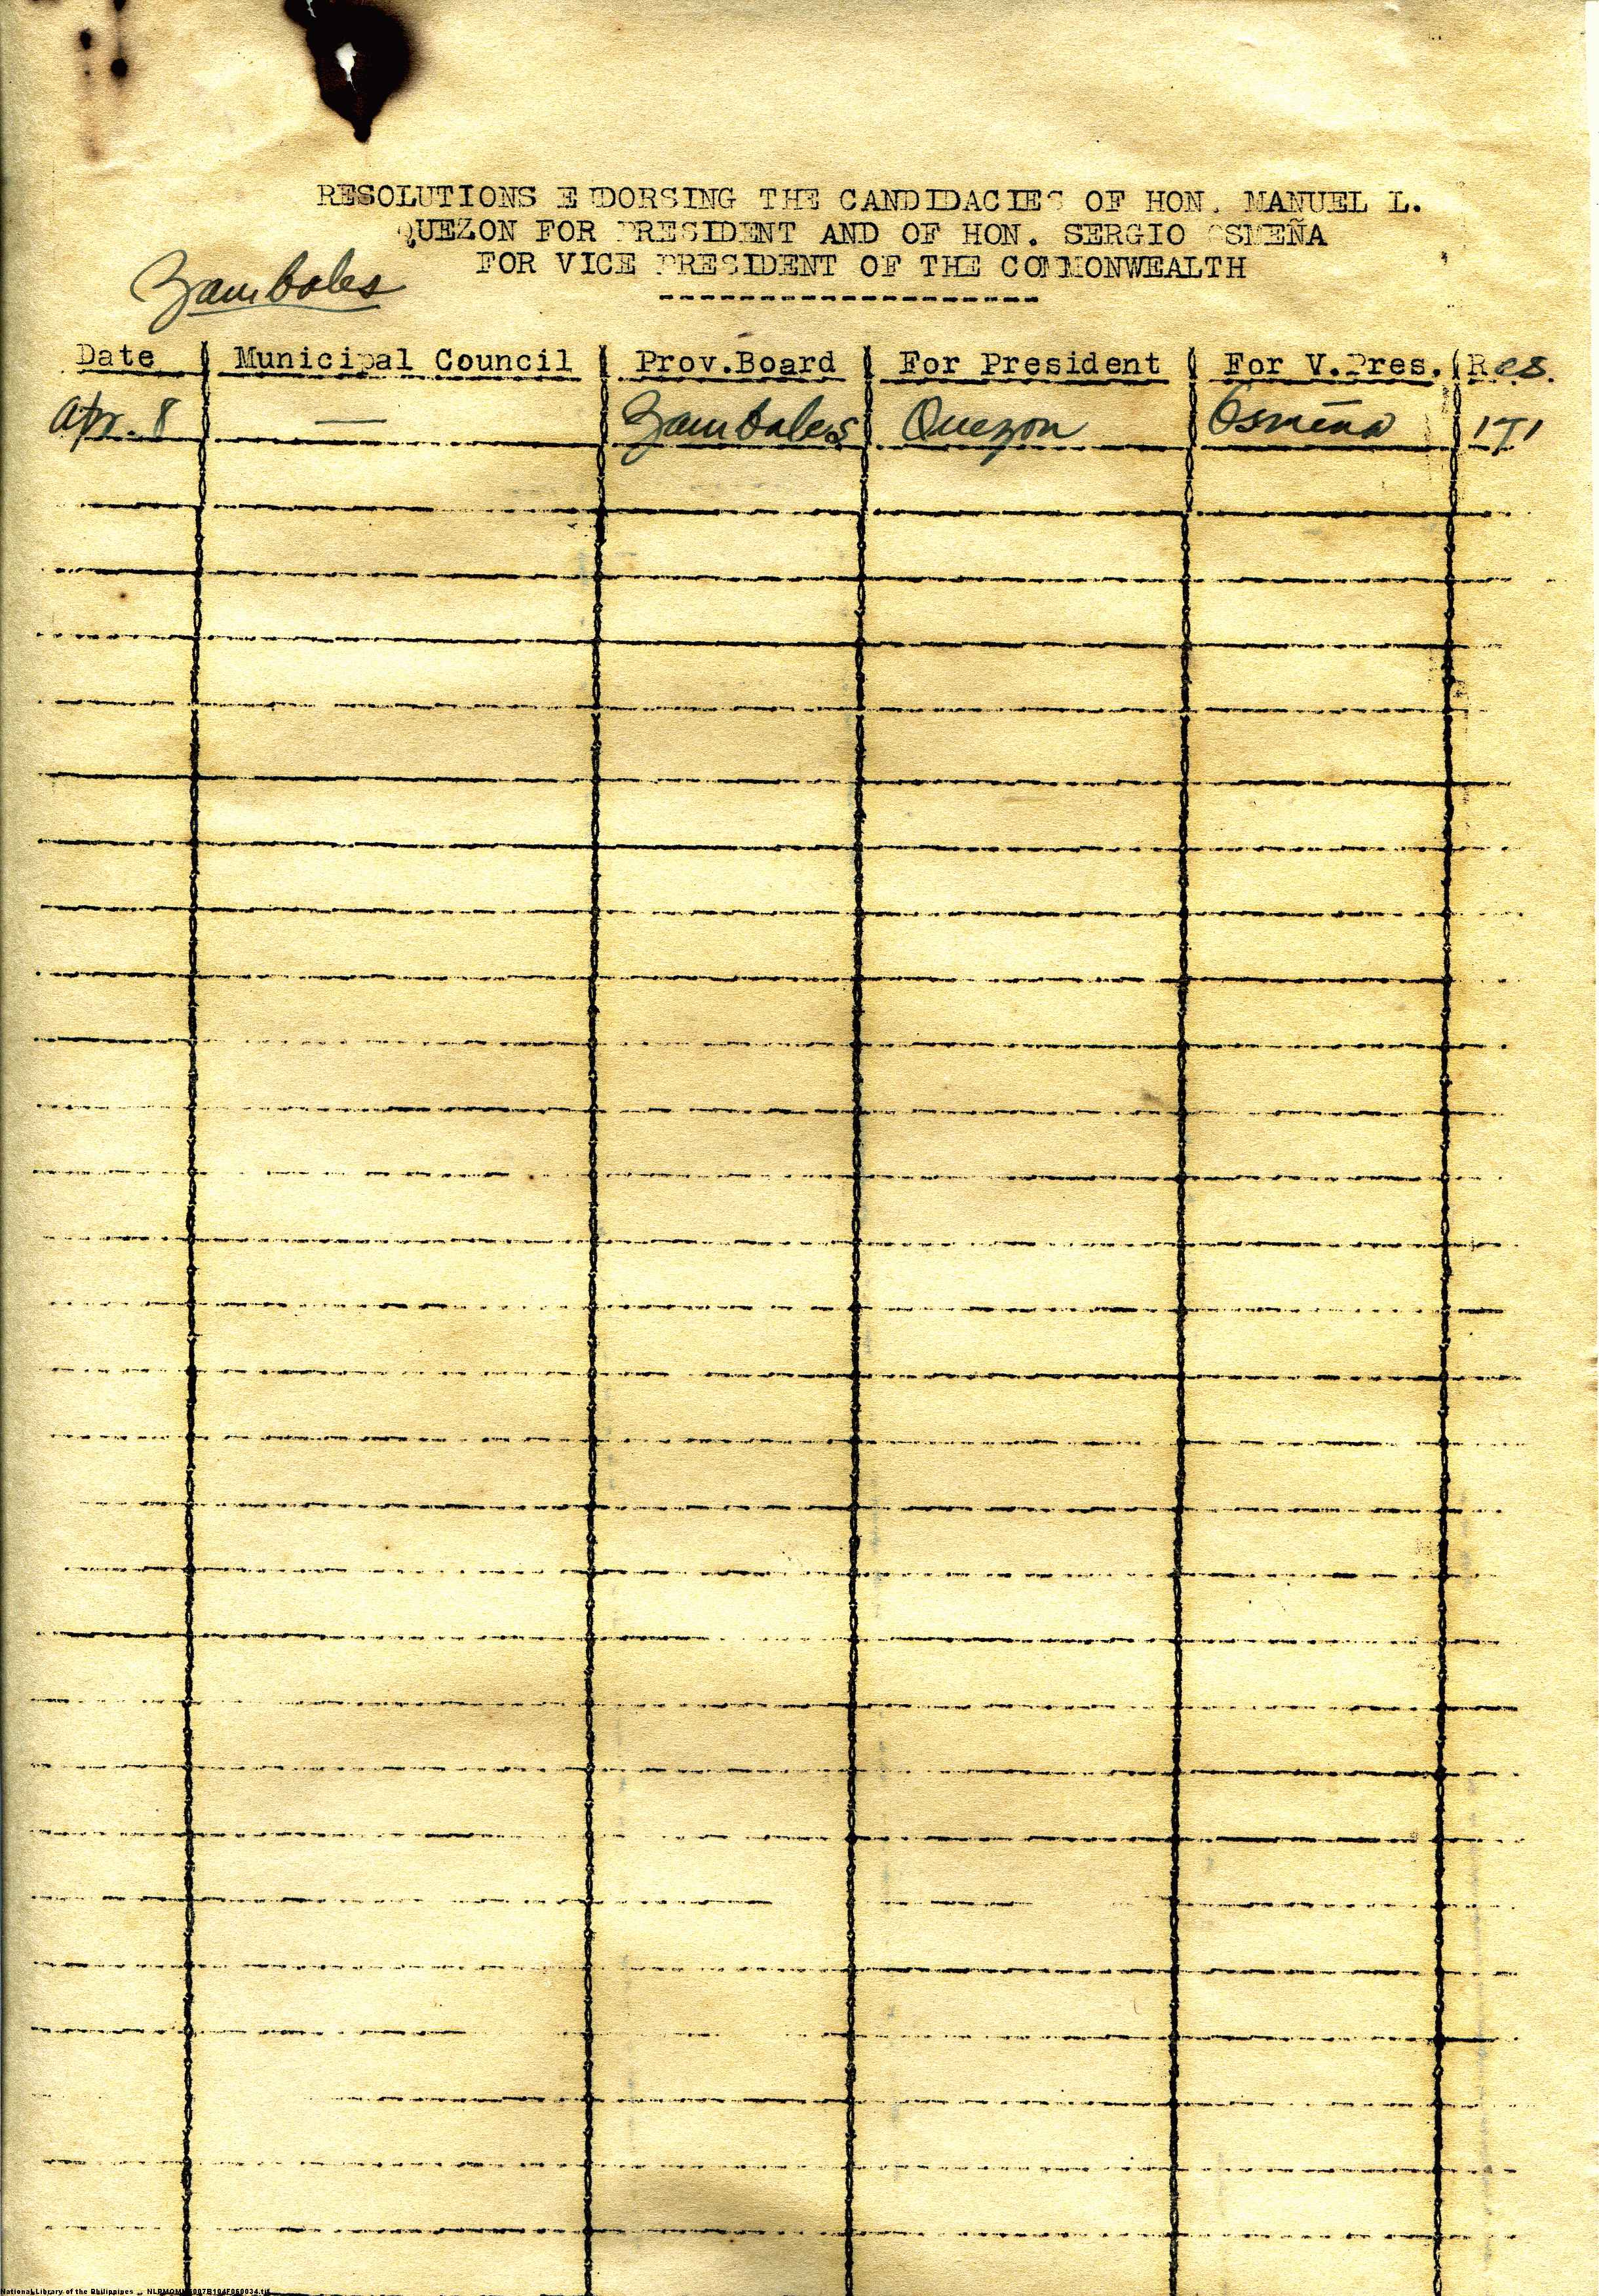 RESOLUTIONS ENDORSING THE CANDIDACIES OF HON. MANUEL L.
QUEZON FOR PRESIDENT AND OF HON. SERGIO OSMEÑA
FOR VICE PRESIDENT OF THE COMMONWEALTH
Zambales
Date Municipal Council Prov.Board For President For V.Pres. Res.
Apr. 8 — Zambales Quezon Osmeña
National Library of the Philippines